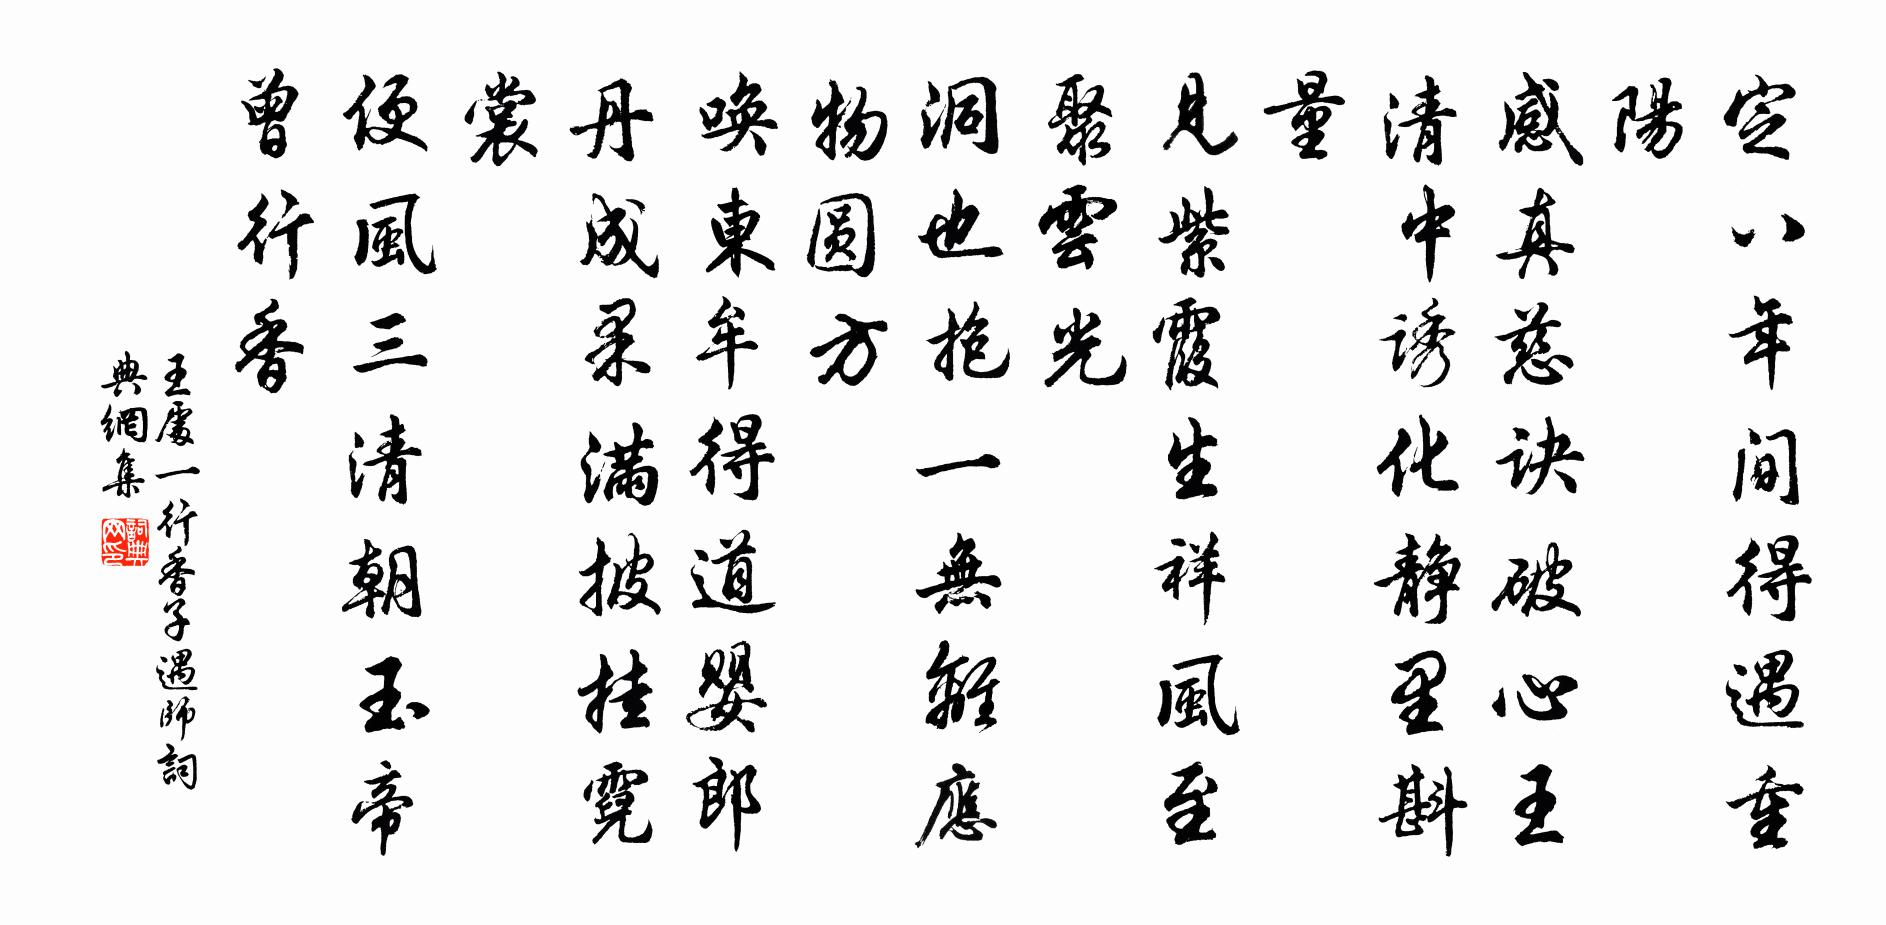 定八年間得遇重
陽
感真慈訣破心王
清中誘化静里斟
量
見紫霞生祥風至
聚雲光
洞也抱一無離應
物圓方
喚東牟得道嬰郎
丹成果滿披挂霓
裳
便風三清朝玉帝
曾行香
王處一行香子遇師詞
典網集
詞典
网印